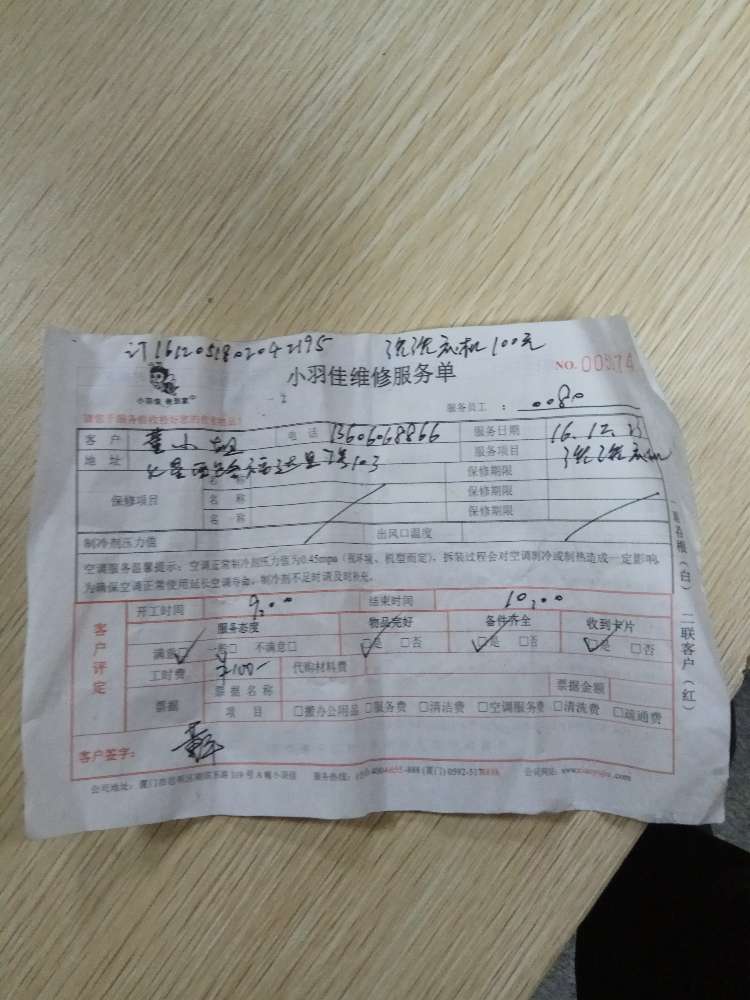 订1612051802042195 洗洗衣机100元
小羽佳维修服务单 NO.
小羽佳 会到家
服务员工： 0080
客户 董小姐 电话 13606068866 服务日期 16.12.
地址 7号103 服务项目 洗洗衣机
保修项目 名称 保修期限
名称 保修期限
名称 保修期限
制冷剂压力值 出风口温度
空调服务温馨提示：空调正常制冷剂压力值为0.45mpa（视环境、机型而定），拆装过程会对空调制冷或制热造成一定影响，
为确保空调正常使用延长空调寿命，制冷剂不足时请及时补充。
开工时间 9:00 结束时间 10:00
客户评定
服务态度 物品完好 备件齐全 收到卡片
满意 一般□ 不满意□ 是 □否 是 □否 是 □否
工时费 ¥100- 代购材料费
票据 票据名称 票据金额
项目 □搬办公用品 □服务费 □清洁费 □空调服务费 □清洗费 □疏通费
客户签字：
公司地址： 服务热线： 公司网址：
一联存根（白） 二联客户（红）